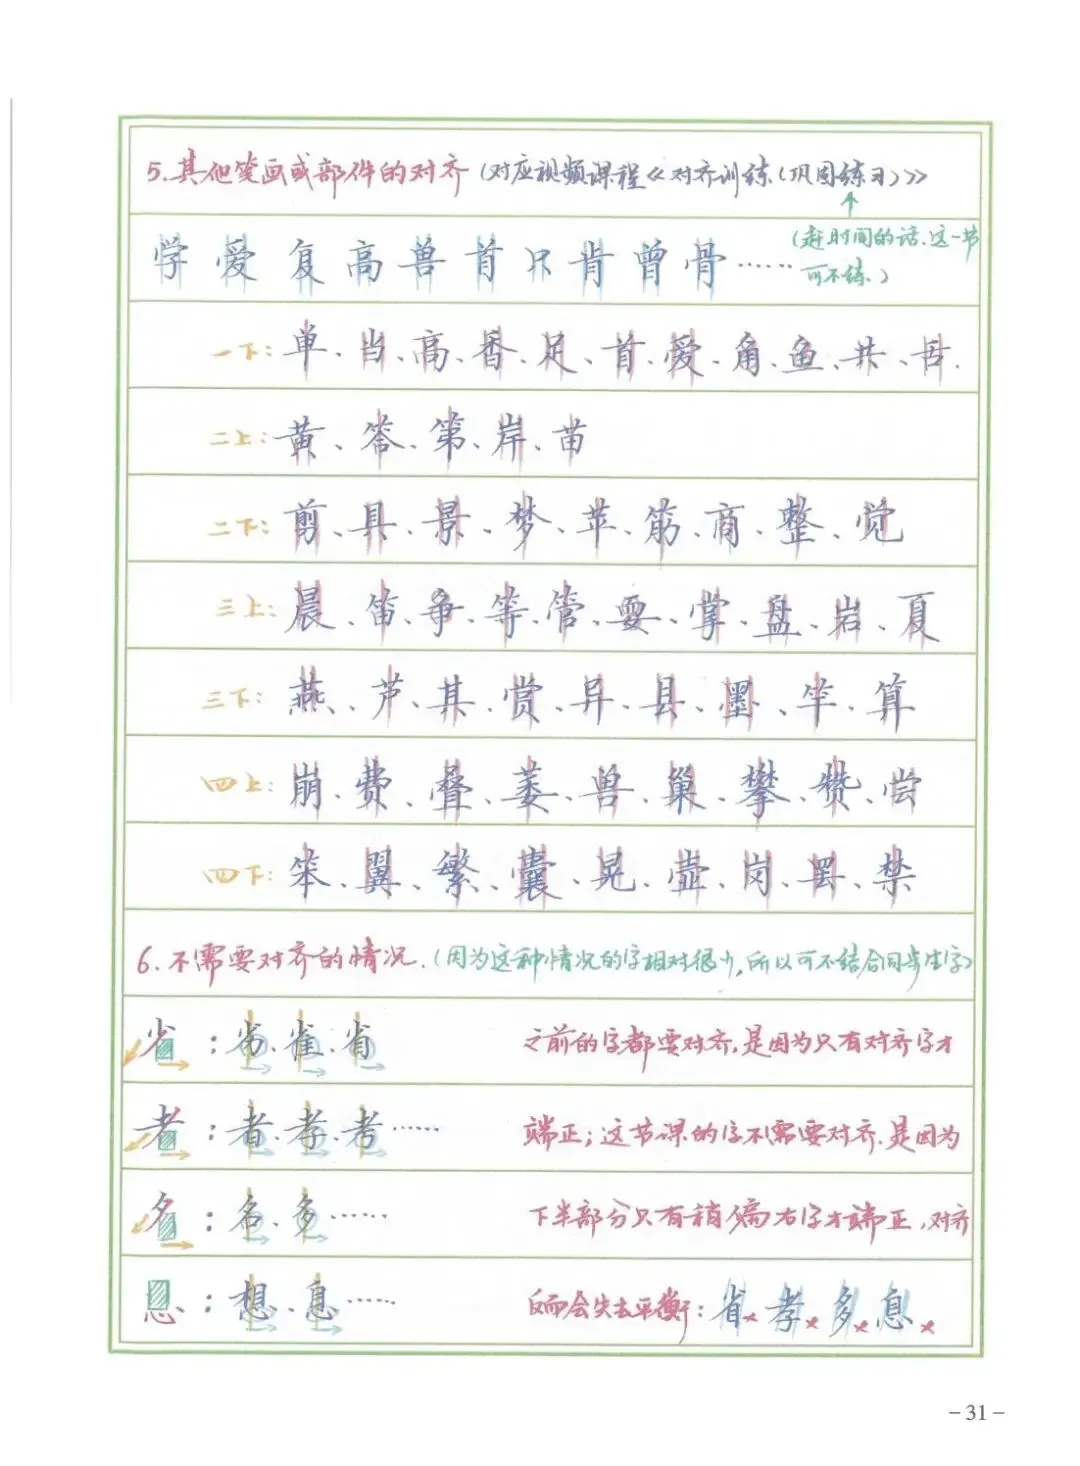 5.其他笔画或部件的对齐(对应视频课程《对齐训练(巩固练习)》)
学爱复高兽首只肯曾骨……(赶时间的话、这一节
可不练。)
一下:单、当、高、香、足、首、爱、角、鱼、共、舌.
二上:黄、答、第、岸、苗
二下:剪、具、景、梦、苹、筋、商、整、觉
三上:晨、笛、争、等、管、要、掌、盘、岩、夏
三下:燕、芦、其、赏、异、县、墨、竿、算
四上:崩、费、叠、萎、兽、巢、攀、赞、尝
四下:笨、翼、繁、囊、晃、壶、岗、罢、禁
6.不需要对齐的情况.(因为这种情况的字相对很少,所以可不结合同步生字)
省:劣、雀、省 之前的字都要对齐,是因为只有对齐字才
者:者、孝、考…… 端正;这节课的字不需要对齐.是因为
名:名、多…… 下半部分只有稍偏右字才端正,对齐
息:想、息…… 反而会失去平衡:省×孝×多×息×
-31-